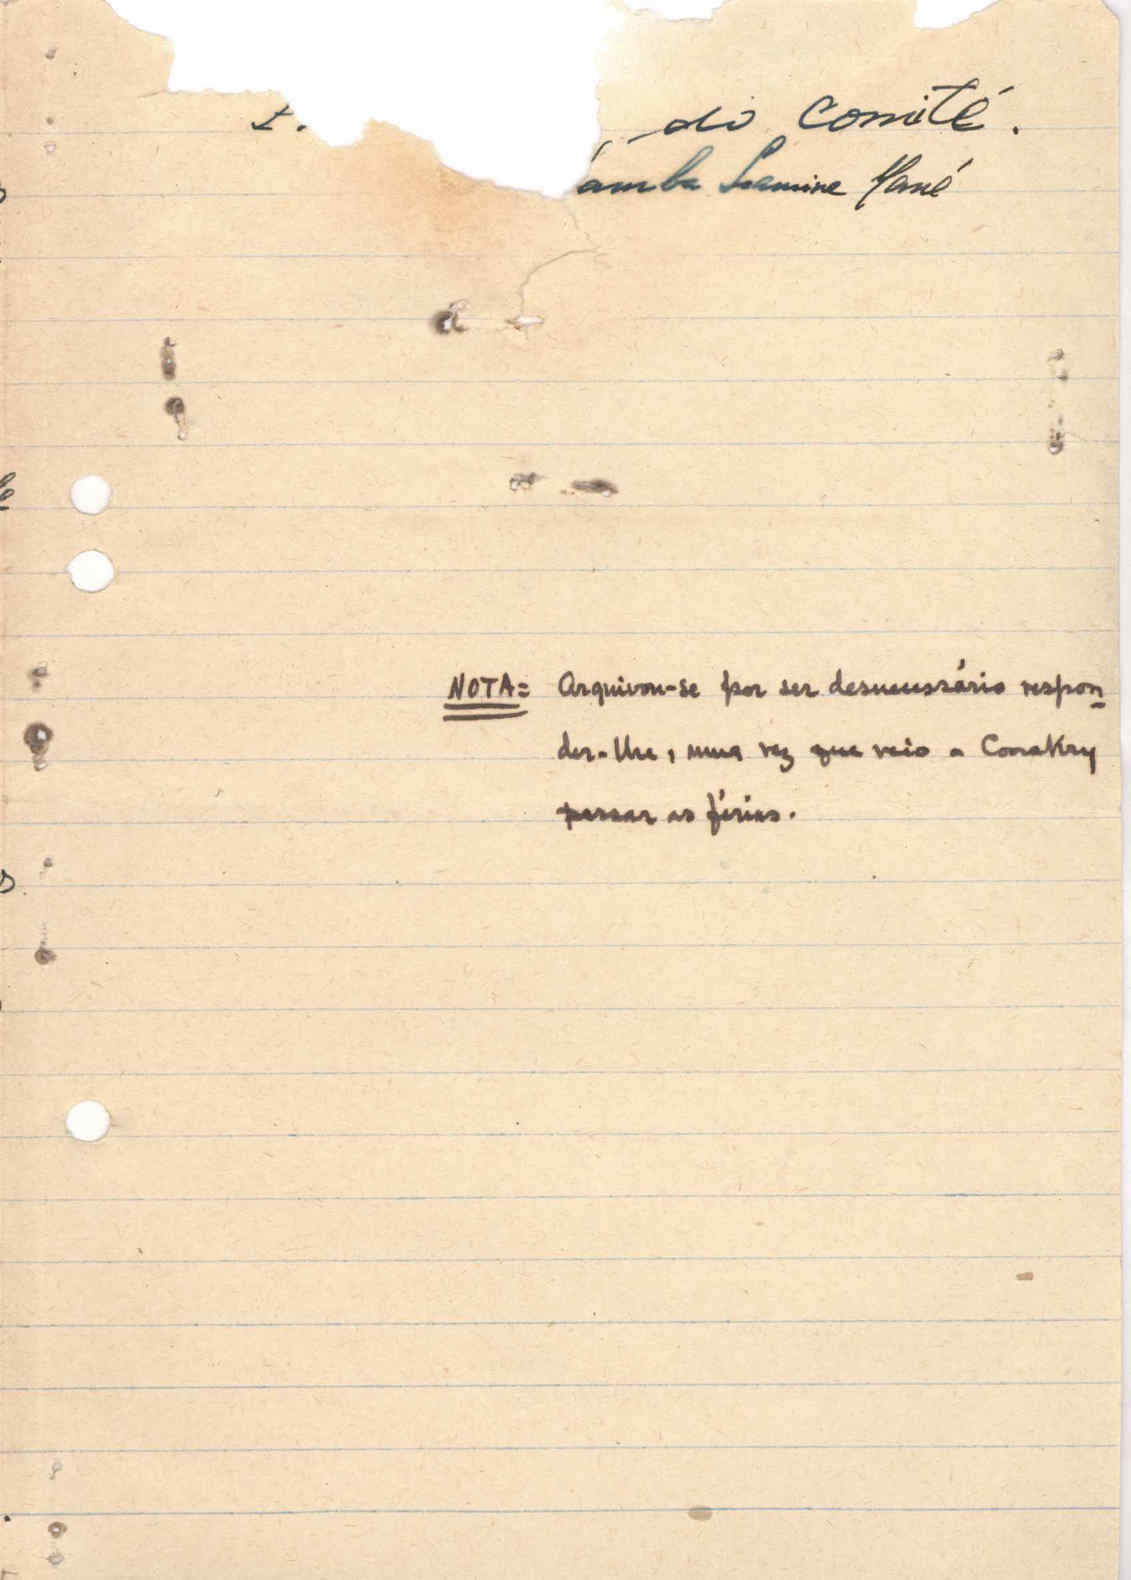 do comité.
âmba Lamine Mané
NOTA= Arquivou-se por ser desnecessário respon-
der-lhe, uma vez que veio a Conakry
passar as férias.